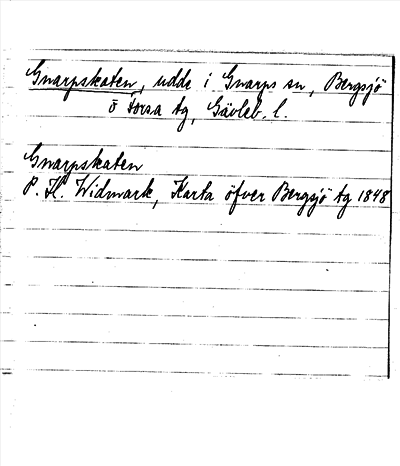 Gnarpskaten, udde i Gnarps sn, Bergsjö
o Forsa tg, Gävleb. l.
Gnarpskaten
P. H. Widmark, Karta öfver Bergsjö tg 1848